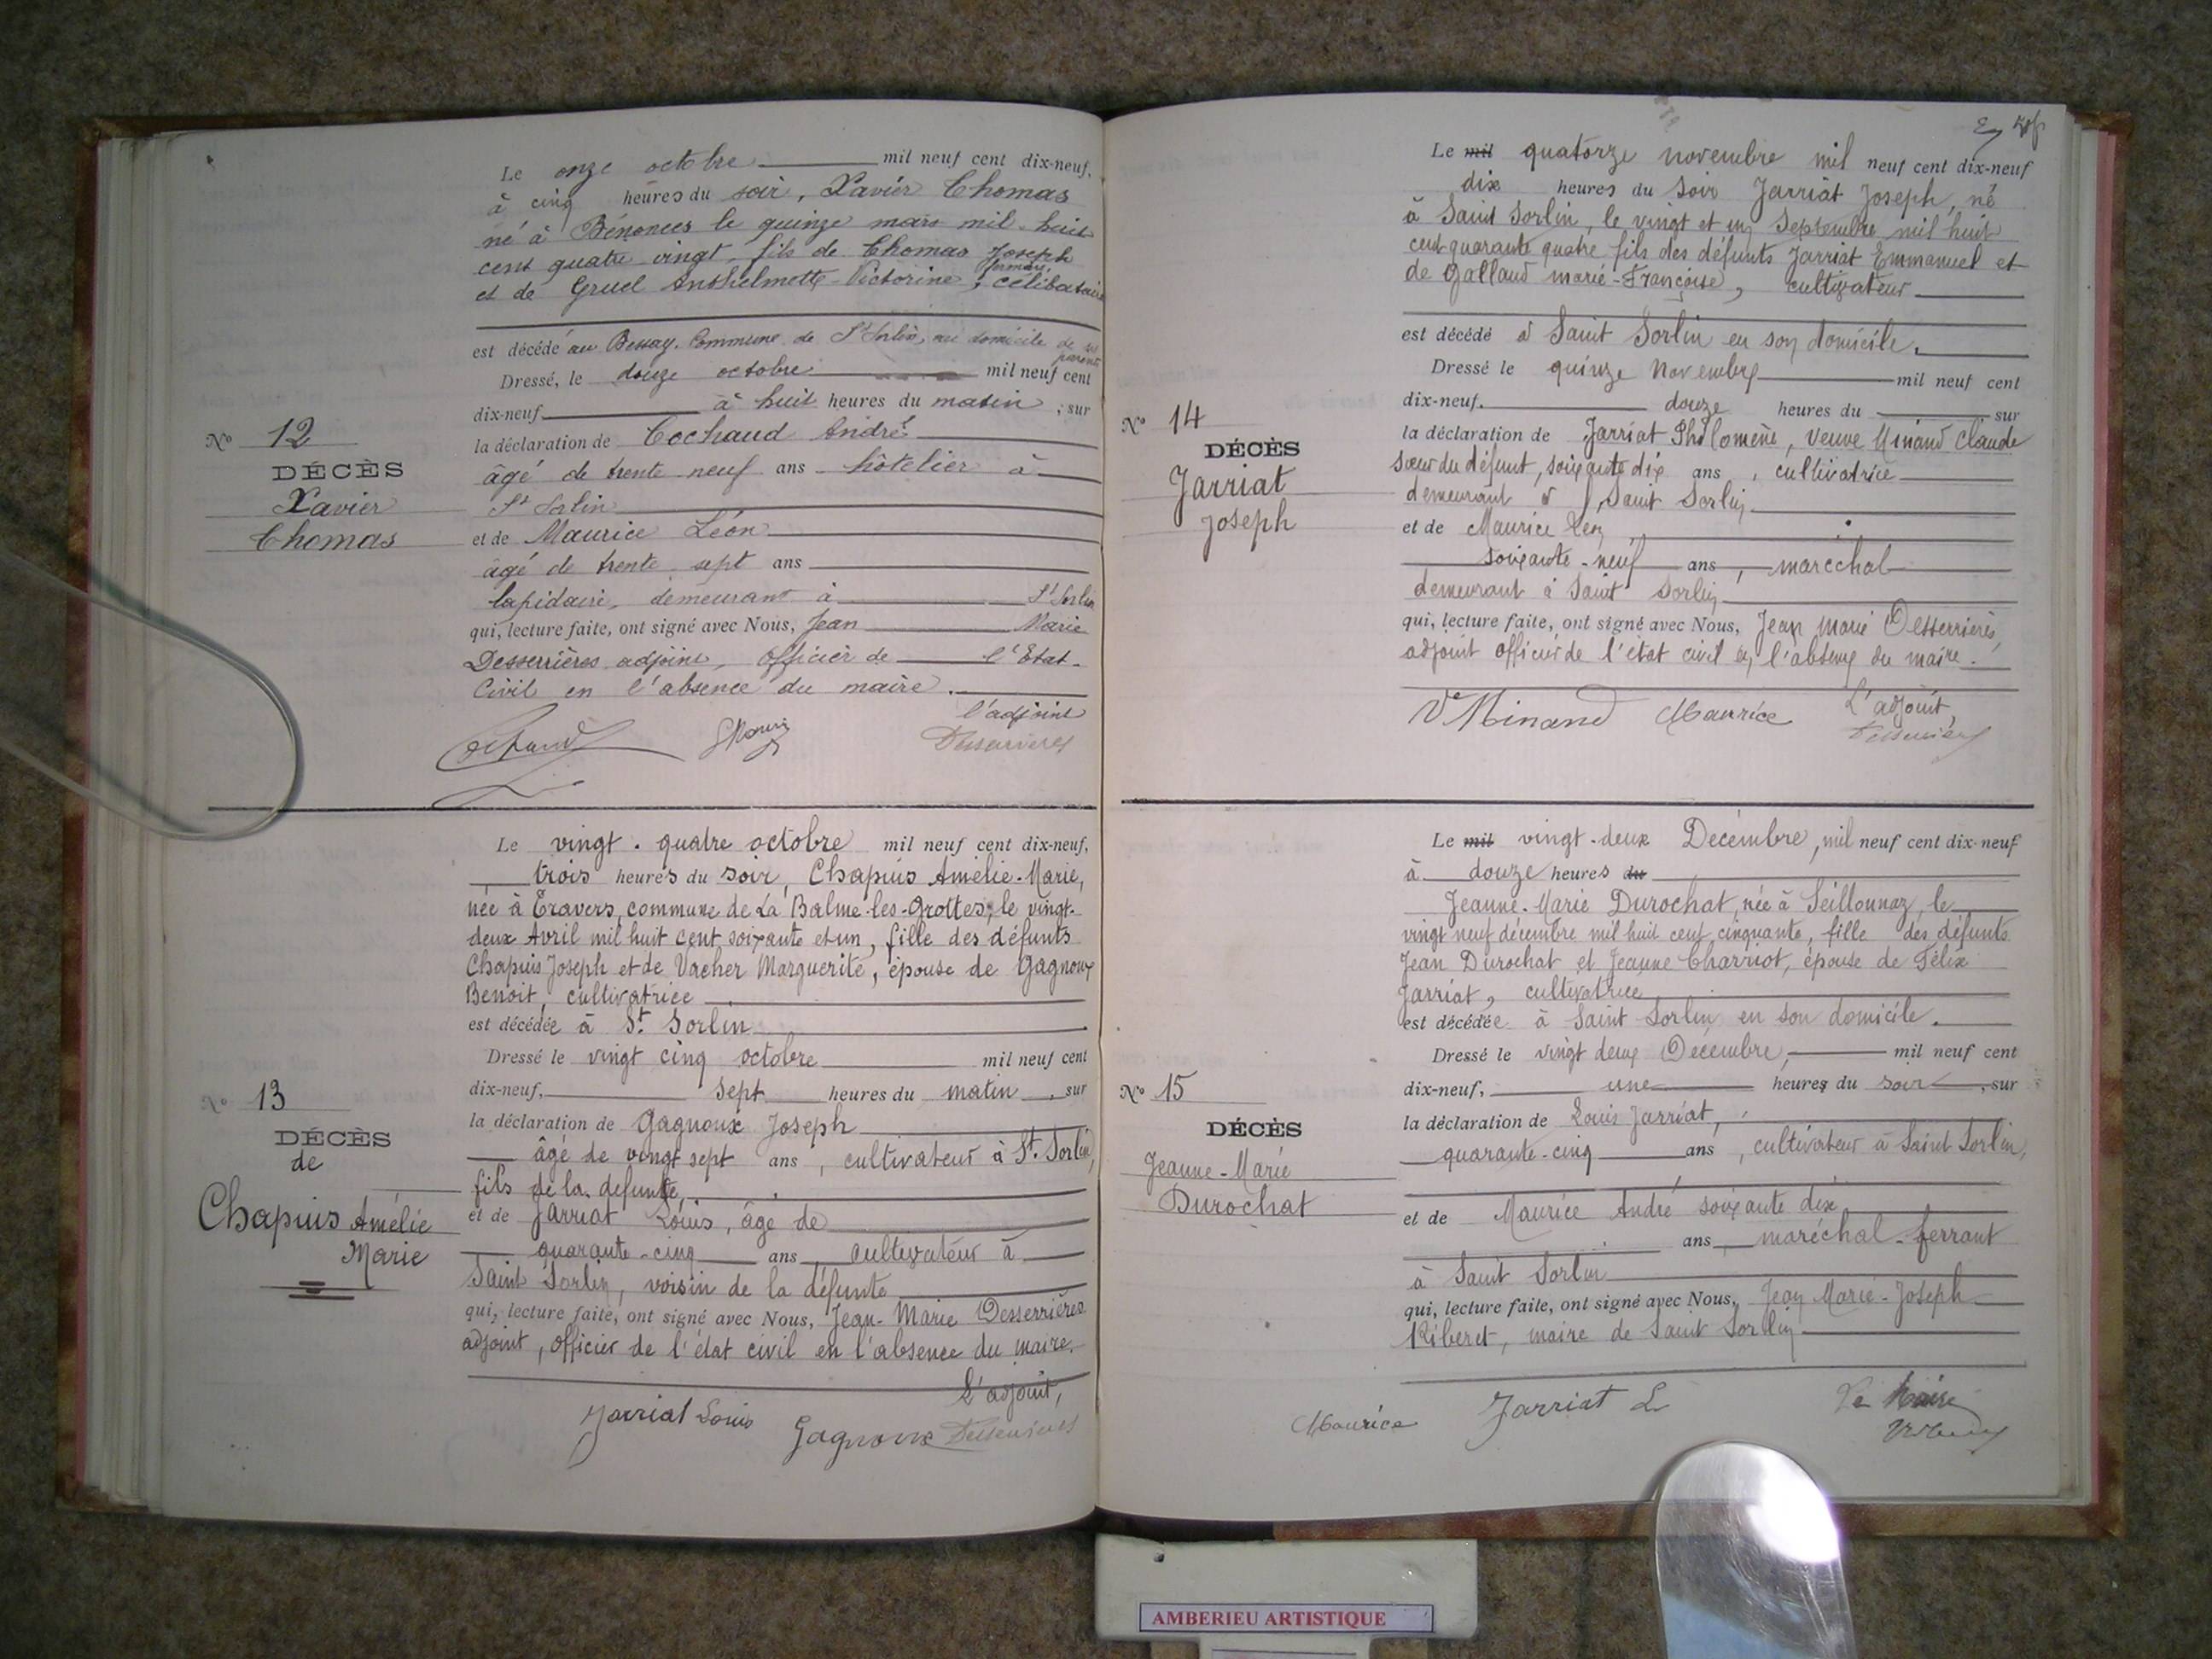 Le onze octobre mil neuf cent dix-neuf,
à cinq heures du soir, Xavier Thomas
né à Bénonces le quinze mars mil huit
cent quatre vingt, fils de Thomas Joseph
et de Gruel Anthelmette Victorine, célibataire
est décédé au Bessay, Commune de St Sorlin, au domicile de ses
parents
Dressé, le douze octobre mil neuf cent
dix-neuf à huit heures du matin ; sur
No 12
la déclaration de Cochaud André
DÉCÈS
âgé de trente neuf ans hôtelier à
Xavier
St Sorlin
Thomas
et de Maurice Léon
âgé de trente sept ans
lapidaire, demeurant à St Sorlin
qui, lecture faite, ont signé avec Nous, Jean Marie
Desserrières adjoint, Officier de l'Etat-
Civil en l'absence du maire.
l'adjoint
Cochaud Desserrières
Le vingt-quatre octobre mil neuf cent dix-neuf,
trois heures du soir, Chapuis Amélie-Marie,
née à Travers, commune de La Balme-les-Grottes, le vingt-
deux Avril mil huit cent soixante et un, fille des défunts
Chapuis Joseph et de Vacher Marguerite, épouse de Gagnoux
Benoit, cultivatrice
est décédée à St. Sorlin
Dressé le vingt cinq octobre mil neuf cent
dix-neuf, sept heures du matin, sur
No 13
la déclaration de Gagnoux Joseph
DÉCÈS
âgé de vingt sept ans, cultivateur à St. Sorlin,
de
fils de la defunte,
Chapuis Amélie
et de Jarriat Louis, âgé de
Marie
quarante-cinq ans, cultivateur à
Saint Sorlin, voisin de la défunte
qui, lecture faite, ont signé avec Nous, Jean-Marie Desserrières
adjoint, officier de l'état civil en l'absence du maire.
L'adjoint,
Jarriat Louis Gagnoux Desserrières
Le mil quatorze novembre mil neuf cent dix-neuf
dix heures du soir Jarriat Joseph, né
à Saint Sorlin, le vingt et un Septembre mil huit
cent quarante quatre fils des défunts Jarriat Emmanuel et
de Gallaud marie-Françoise, cultivateur
est décédé à Saint Sorlin en son domicile.
Dressé le quinze Novembre mil neuf cent
dix-neuf. douze heures du sur
No 14
la déclaration de Jarriat Philomène, veuve Minand Claude
DÉCÈS
sœur du défunt, soixante dix ans, cultivatrice
Jarriat
demeurant à Saint Sorlin
Joseph
et de Maurice
soixante-neuf ans, maréchal
demeurant à Saint Sorlin
qui, lecture faite, ont signé avec Nous, Jean Marie Desserrières,
adjoint officier de l'état civil en l'absence du maire.
Ve Minand Maurice L'adjoint,
Desserrières
Le mil vingt-deux Décembre, mil neuf cent dix-neuf
à douze heures du
Jeanne-Marie Durochat, née à Seillonnaz, le
vingt neuf décembre mil huit cent cinquante, fille des défunts
Jean Durochat et Jeanne Charriot, épouse de Félix
Jarriat, cultivatrice
est décédée à Saint Sorlin en son domicile.
Dressé le vingt deux Décembre, mil neuf cent
dix-neuf, une heures du soir, sur
No 15
la déclaration de Louis Jarriat,
DÉCÈS
quarante-cinq ans, cultivateur à Saint Sorlin,
Jeanne-Marie
Durochat
et de Maurice André soixante dix
ans maréchal-ferrant
à Saint Sorlin
qui, lecture faite, ont signé avec Nous, Jean Marie-Joseph
Riberet, maire de Saint Sorlin
Maurice Jarriat L Le Maire
AMBERIEU ARTISTIQUE